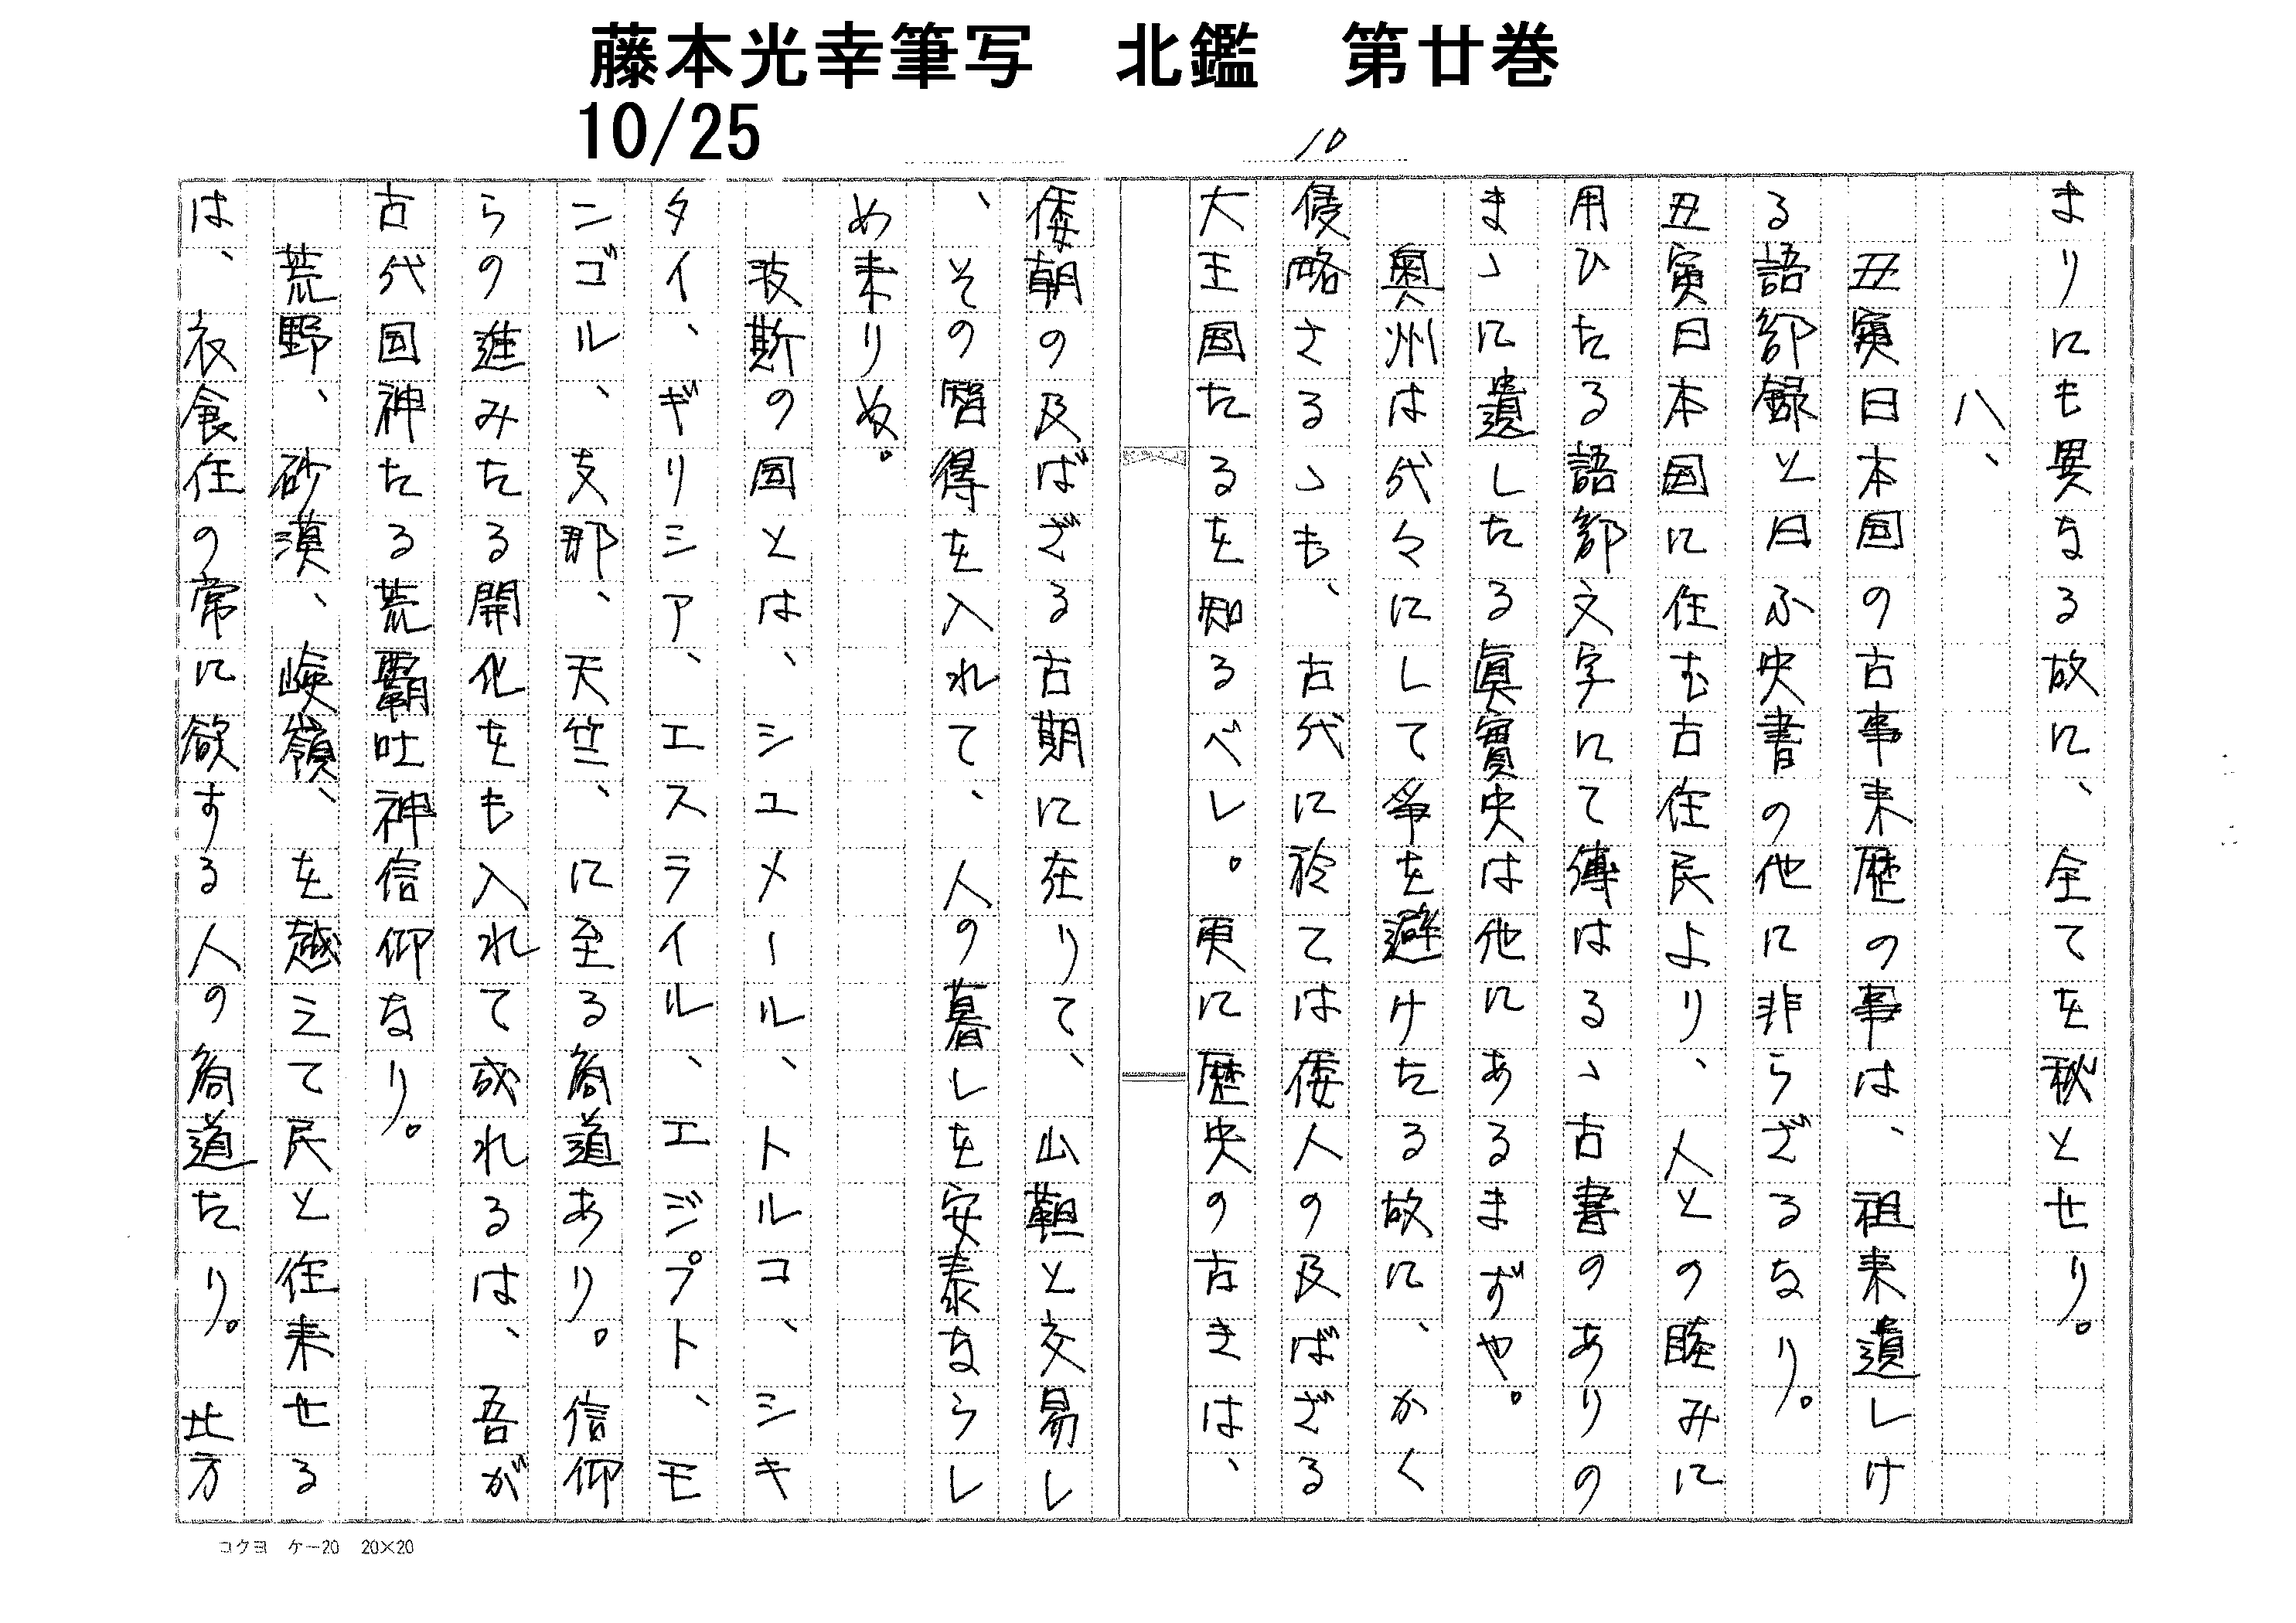 藤本光幸筆写　北鑑　第廿巻
10/25
10
まりにも異なる故に、全てを秘とせり。
八、
丑寅日本国の古事来歴の事は、祖来遺しけ
る語部録と曰ふ史書の他に非らざるなり。
丑寅日本国に住む古住民より、人との睦みに
用ひたる語部文字にて傳はるゝ古書のありの
まゝに遺したる眞實史は他にあるまずや。
奥州は代々にして爭を避けたる故に、かく
侵略さるゝも、古代に於ては倭人の及ばざる
大王国たるを知るべし。更に歴史の古きは、
倭朝の及ばざる古期に在りて、山靼と交易し
、その智得を入れて、人の暮しを安泰ならし
め来りぬ。
波斯の国とは、シュメール、トルコ、シキ
タイ、ギリシア、エスライル、エジプト、モ
ンゴル、支那、天竺、に至る商道あり。信仰
らの進みたる開化をも入れて成れるは、吾が
古代国神たる荒覇吐神信仰なり。
荒野、砂漠、峻嶺、を越えて民と住来せる
は、衣食住の常に欲する人の商道たり。此方
コクヨ　ケー20　20×20